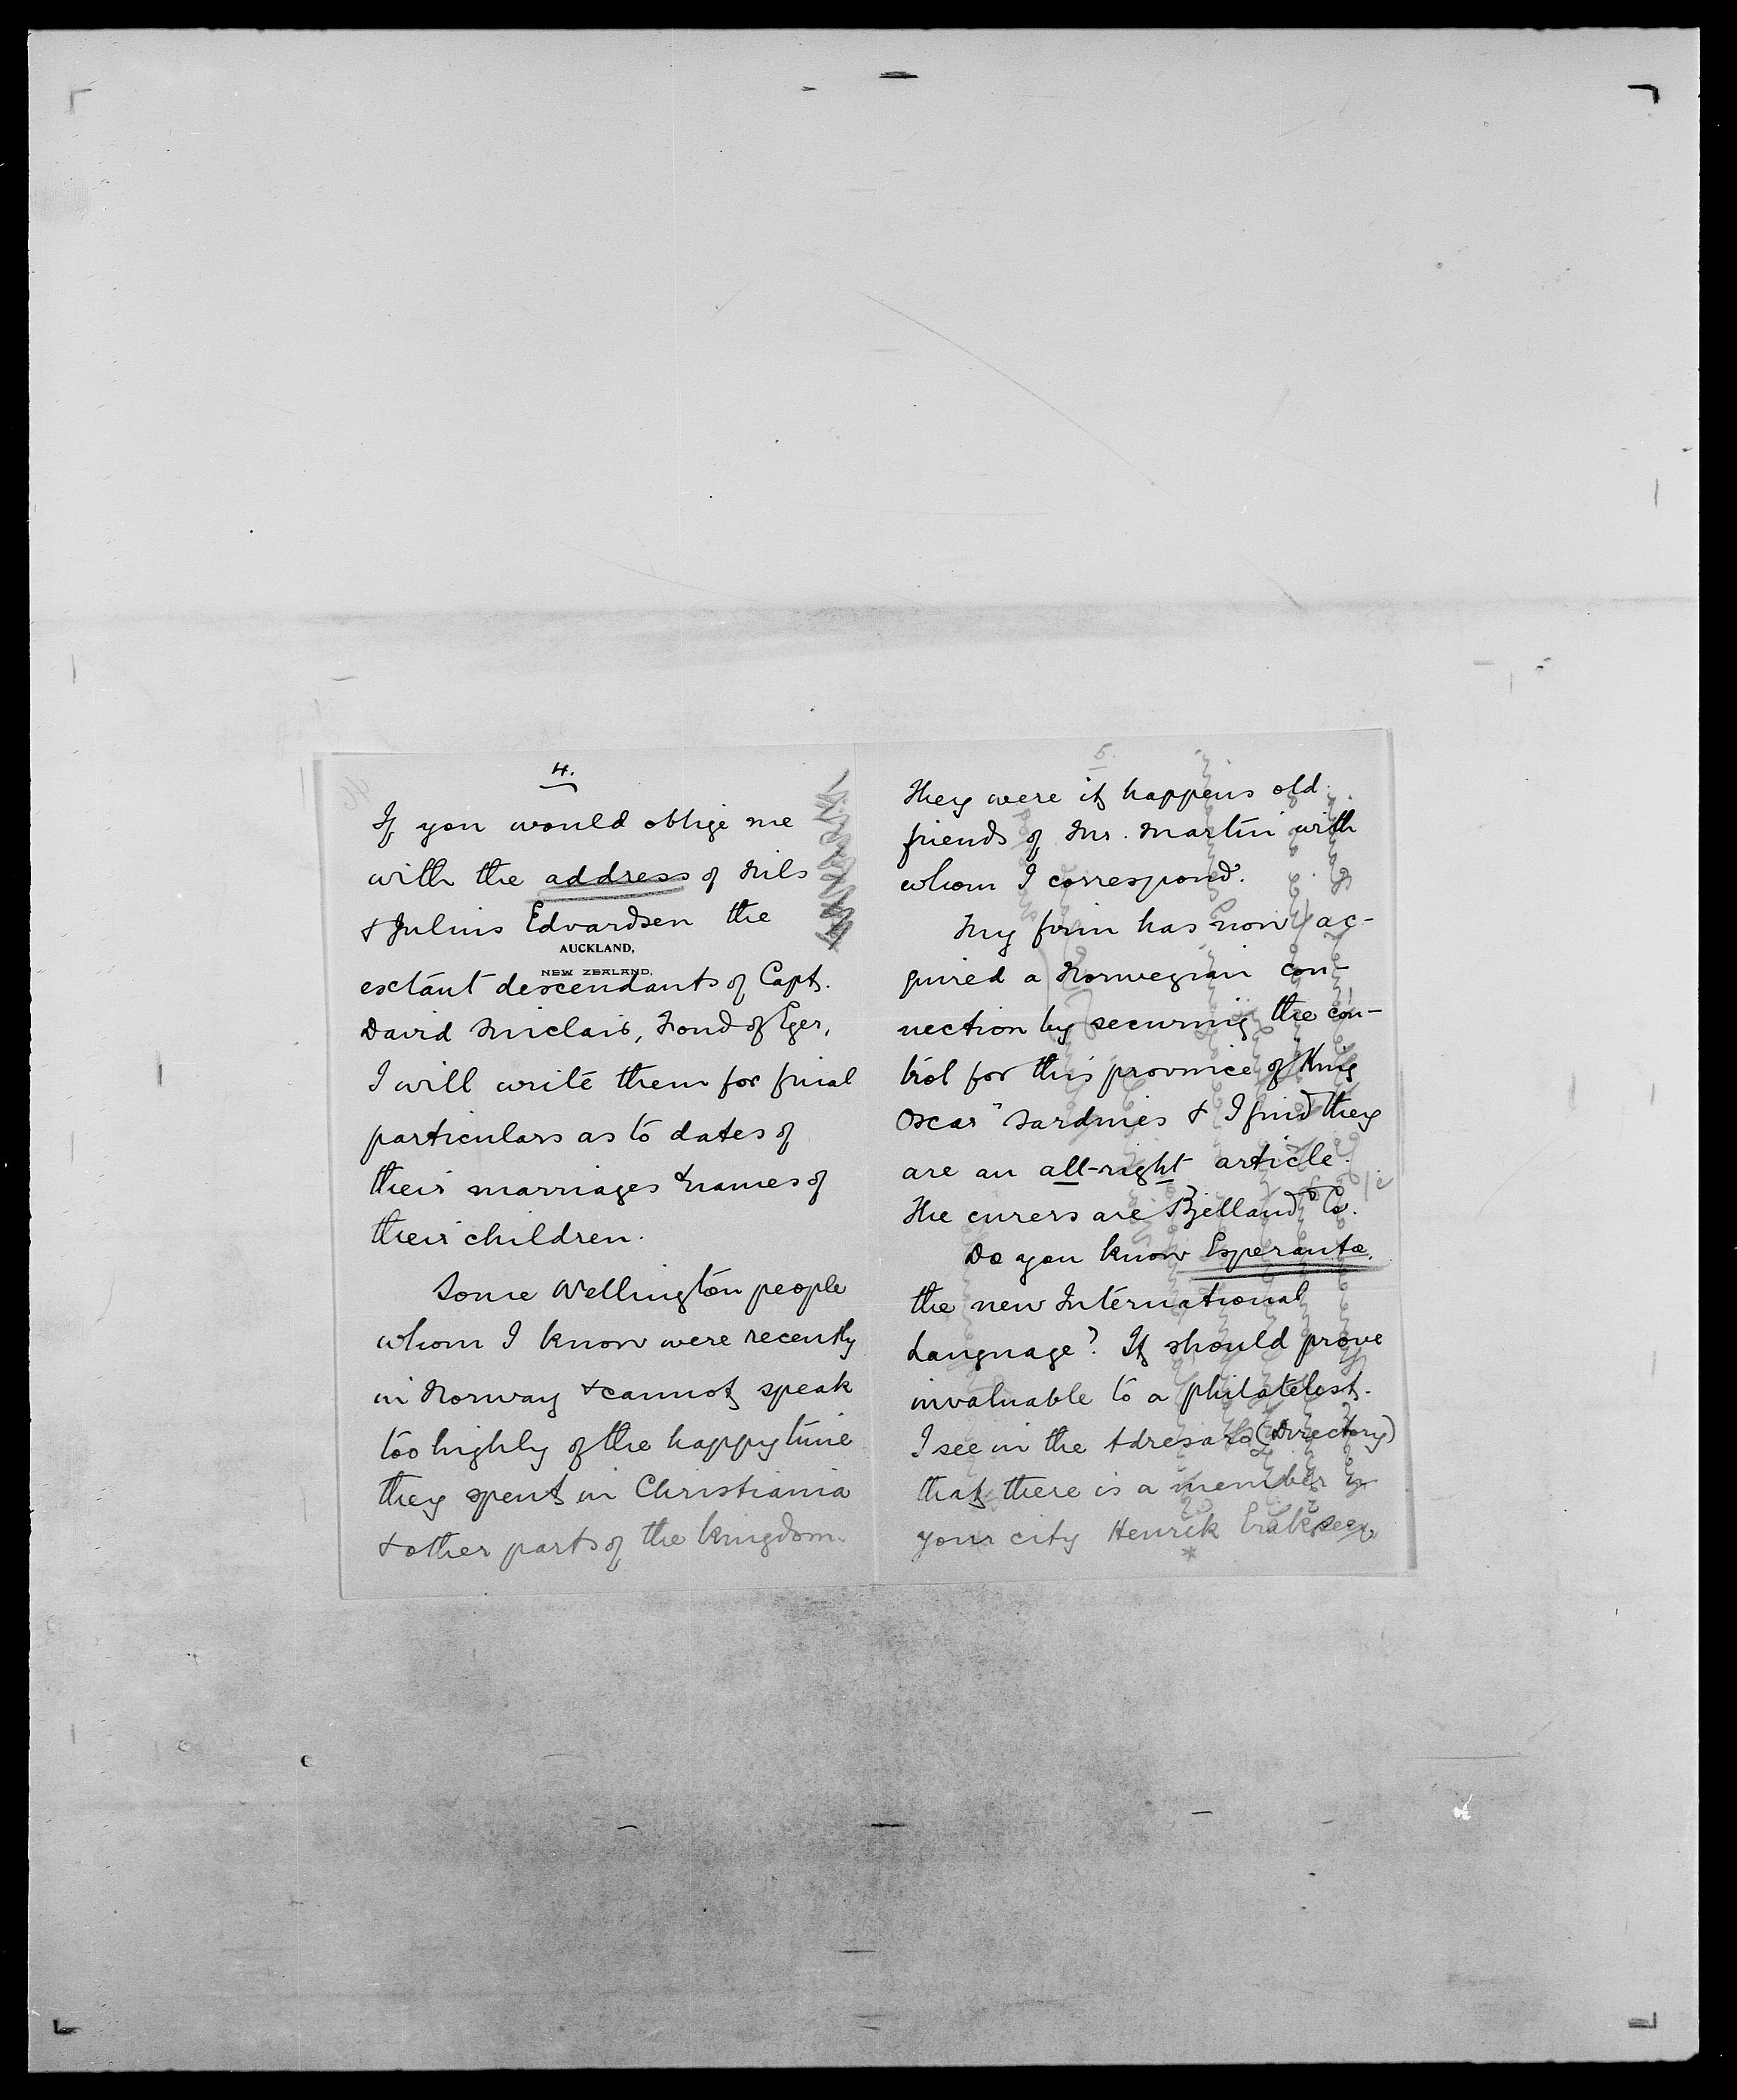 4.
If you would oblige me
with the address of Nils
& Julius Edvardsen the
AUCKLAND,
NEW ZEALAND.
exctant descendants of Capt.
David Sinclair, Fond of Eger,
I will write them for final
particulars as to dates of
their marriages & names of
their children.
Some Wellington people
whom I know were recently
in Norway & cannot speak
too highly of the happy time
they spent in Christiania
& other parts of the kingdom.
5.
They were it happens old
friends of Mr. Martin with
whom I correspond.
My firm has now ac-
quired a Norwegian con-
nection by securing the con-
trol for this province of King
Oscar" Sardines & I find they
are an all-right article.
The curers are Bjelland & Co.
Do you know Esperanto,
the new International
Language? It should prove
invaluable to a philatelist.
I see in the Adresaro (Directory)
that there is a member in
your city Henrik
*